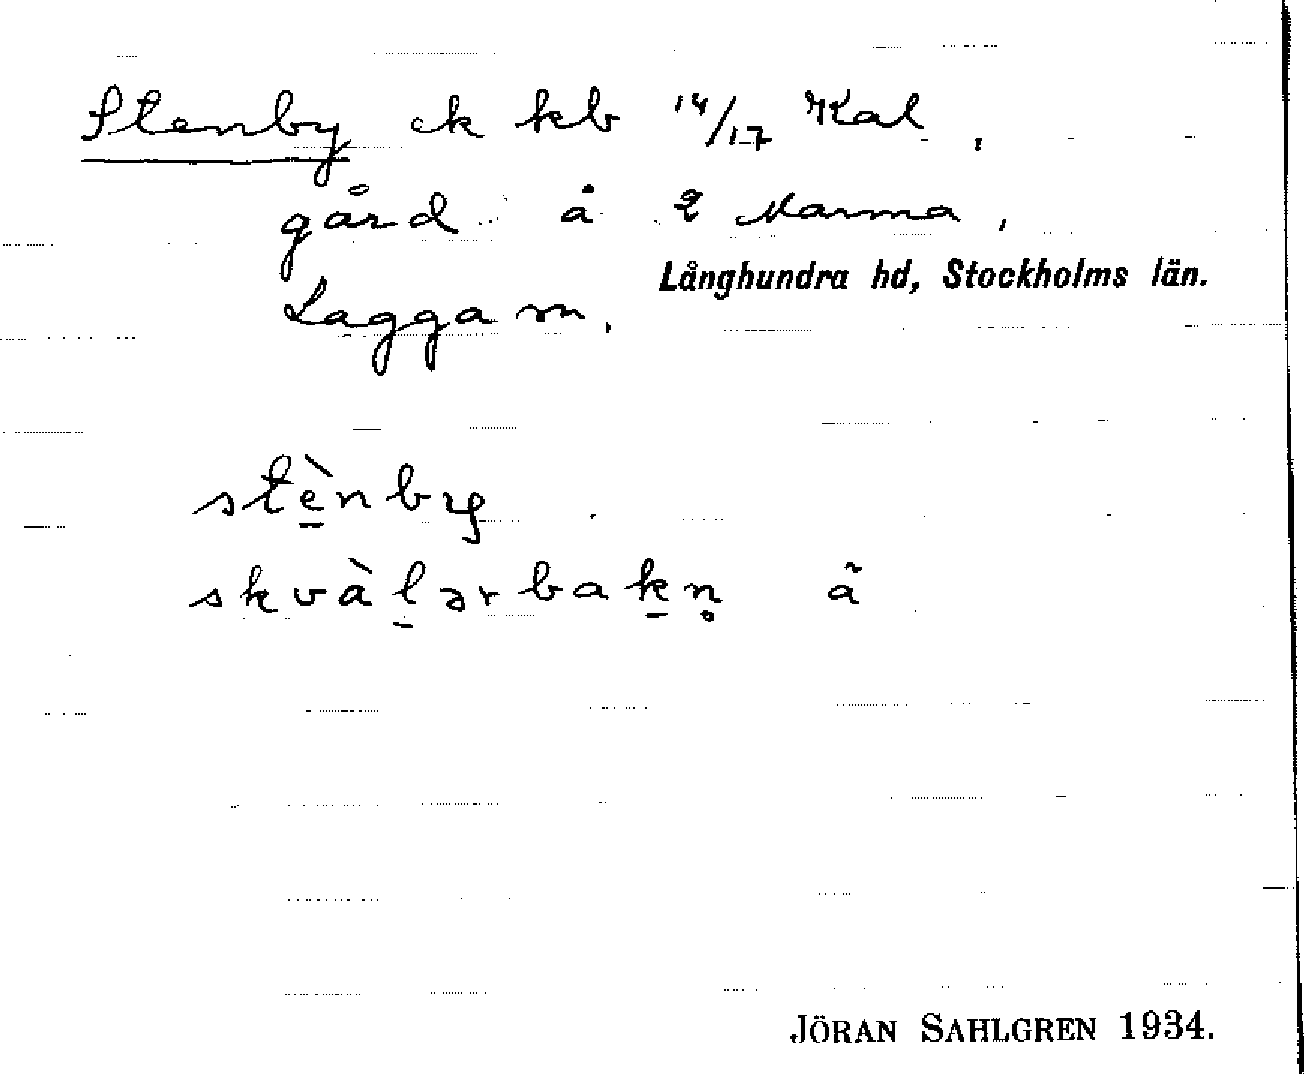 Stenby ek kb 14/17 Kal,
gård å 2 Marma,
Långhundra hd, Stockholms län.
Lagga sn.
stè̠nby
skvàl̠ərbak̠n̥ ã
JÖRAN SAHLGREN 1934.